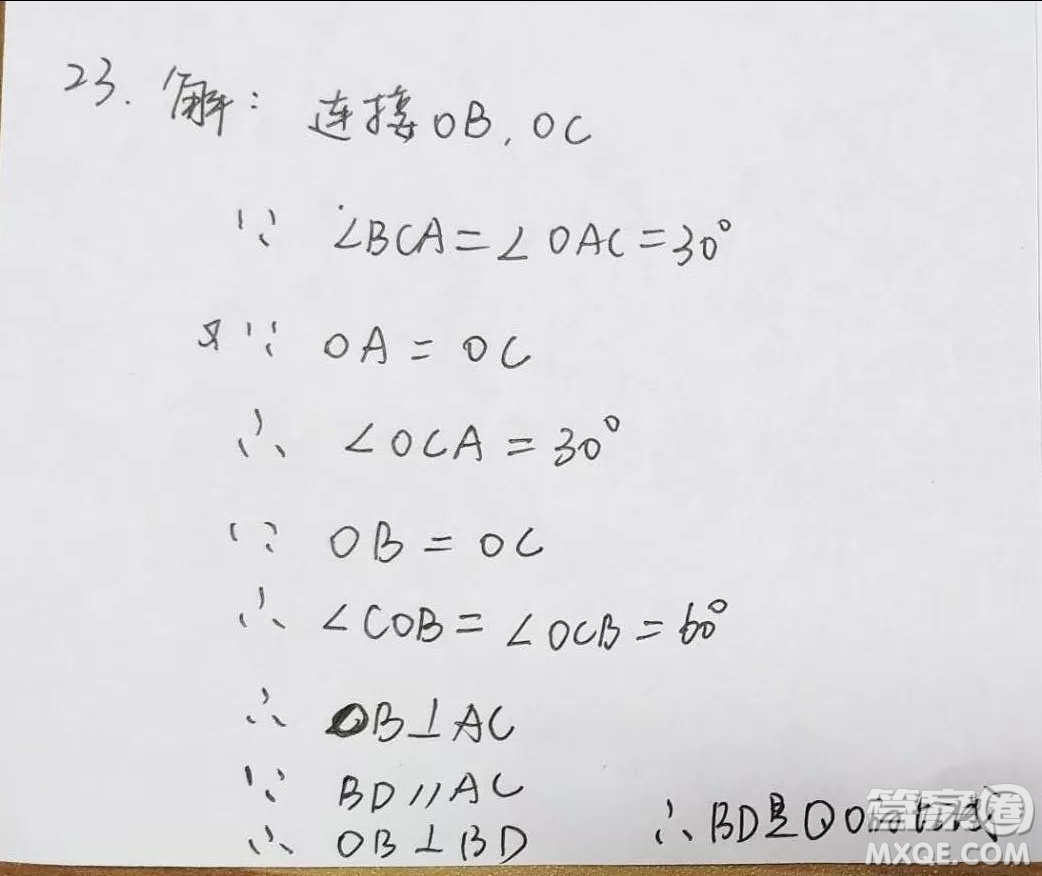 23. 解： 连接OB, OC
∵ ∠BCA=∠OAC=30°
又∵ OA = OC
∴ ∠OCA = 30°
∵ OB = OC
∴ ∠COB = ∠OCB = 60°
∴ OB⊥AC
∵ BD//AC
∴ OB⊥BD ∴BD是⊙O的切线
答案圈
MXQE.COM